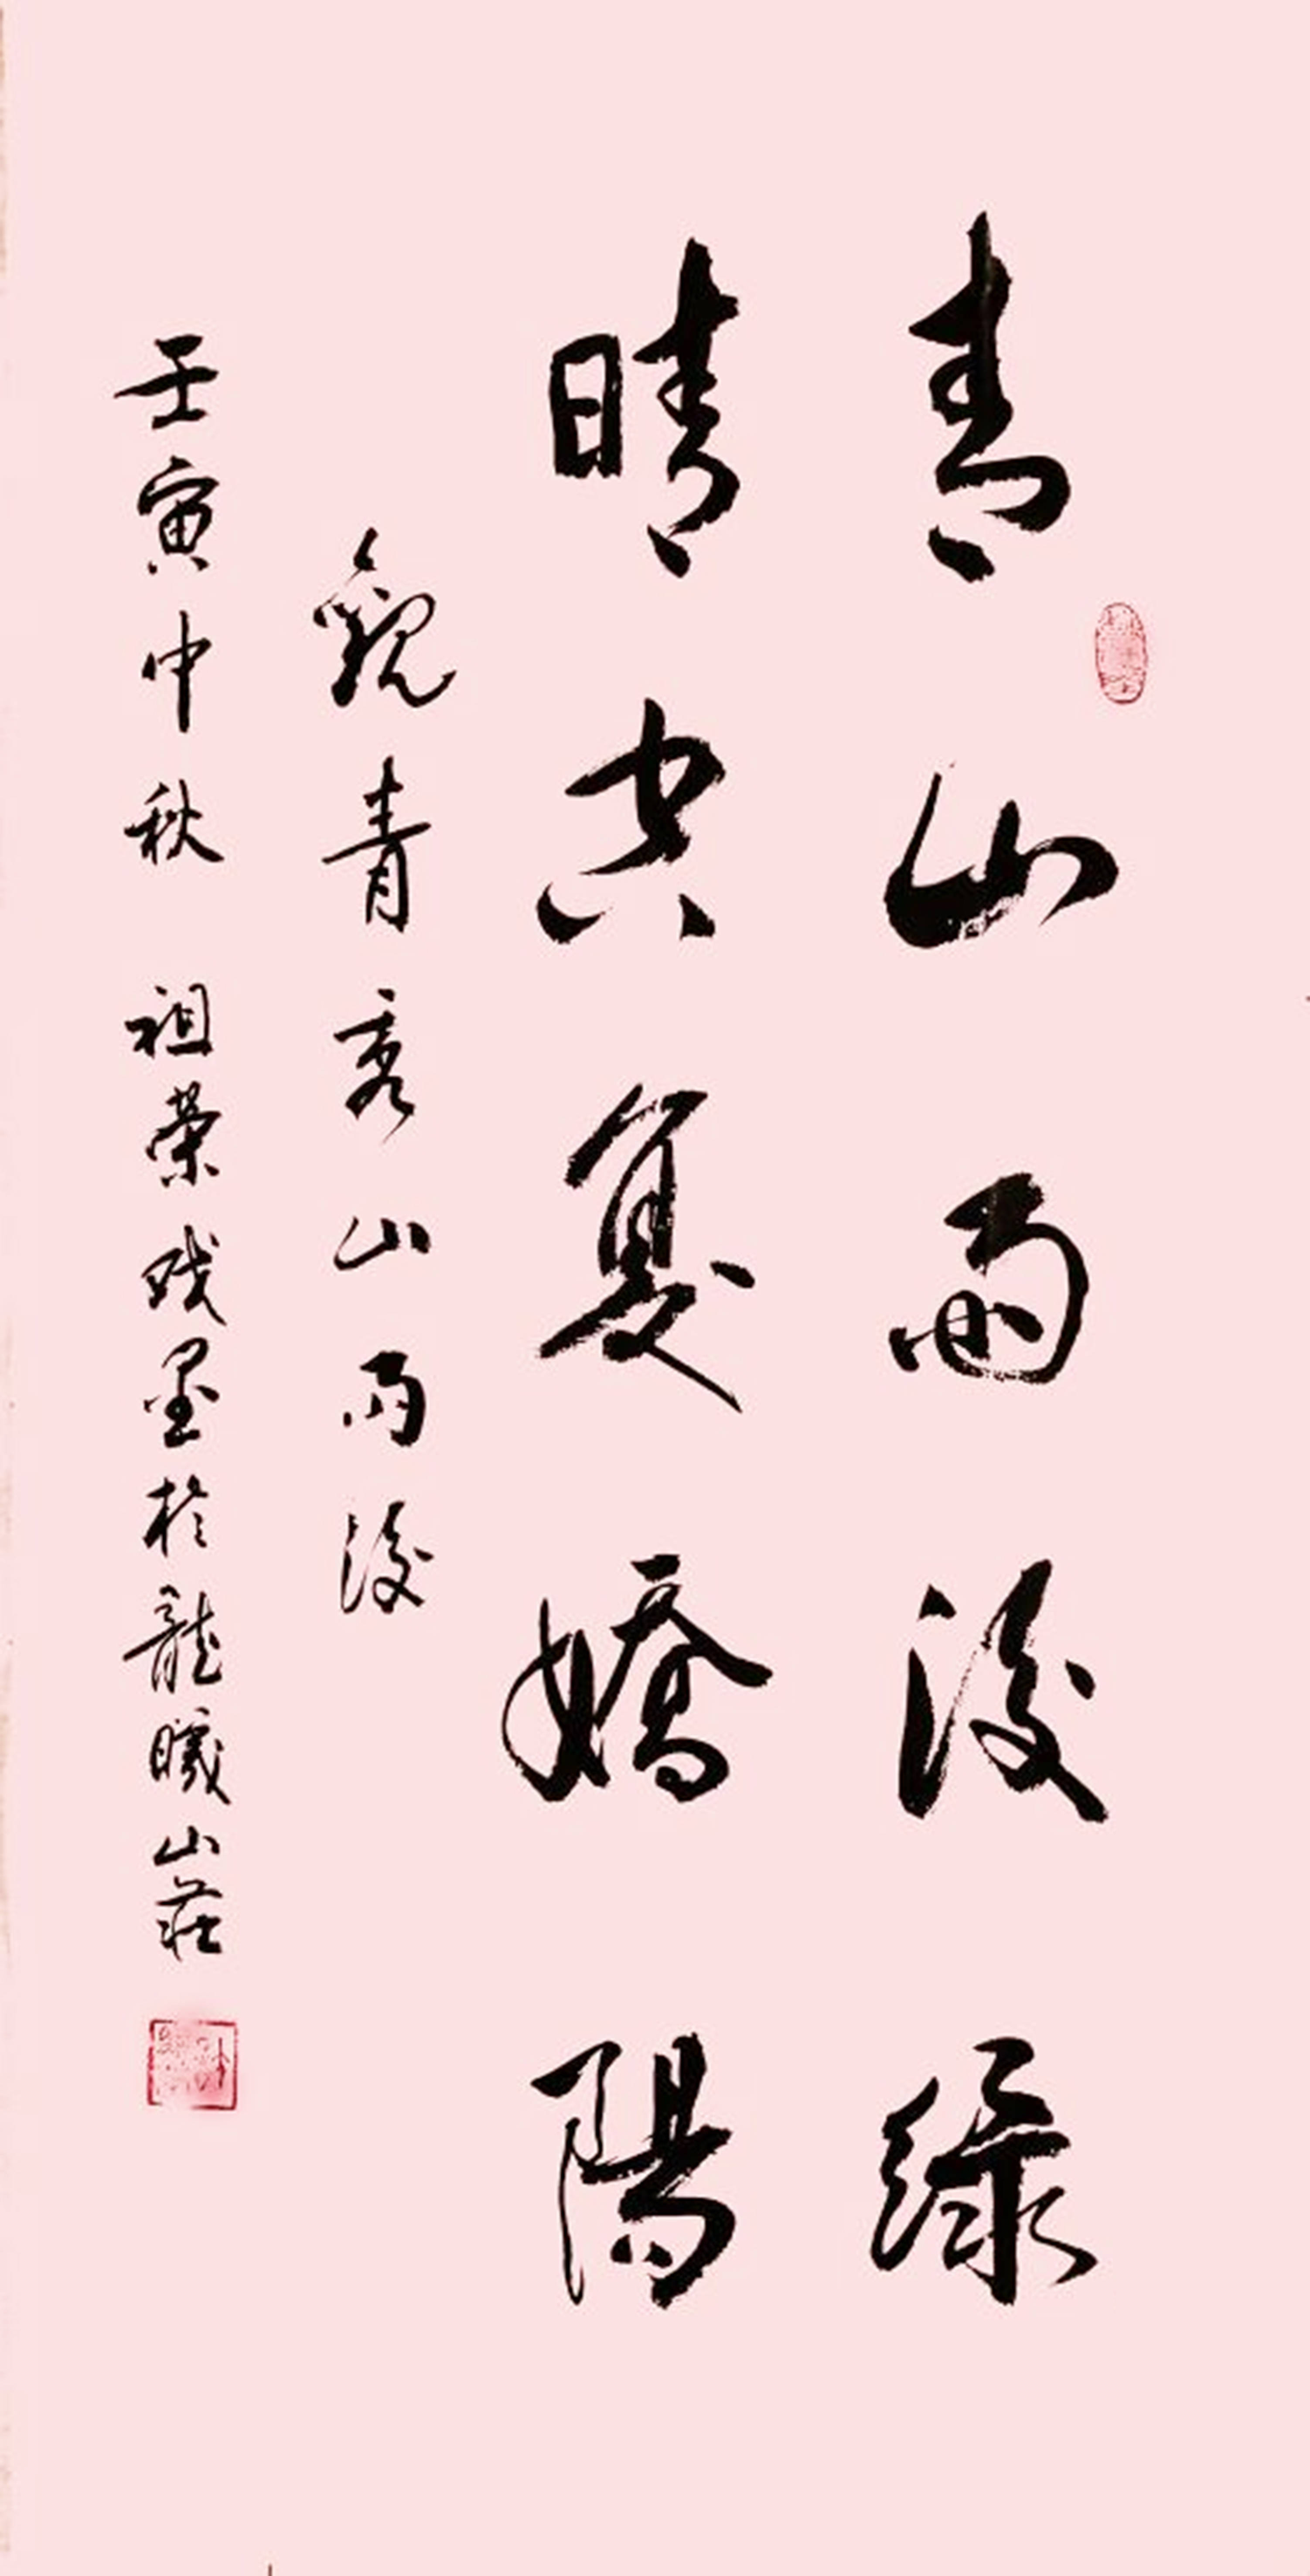 青山雨後綠
晴空夏嬌陽
觀青秀山雨後
壬寅中秋 祖榮戏墨於龍曦山莊